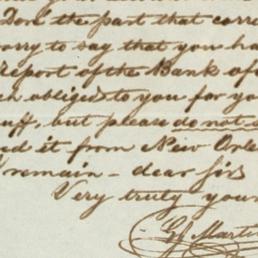 Don the part that corre
sorry to say that you ha
report of the Bank of
ch obliged to you for yo
uff, but please do not
ed it from New Orle
remain - dear sirs
Very truly your
Martin